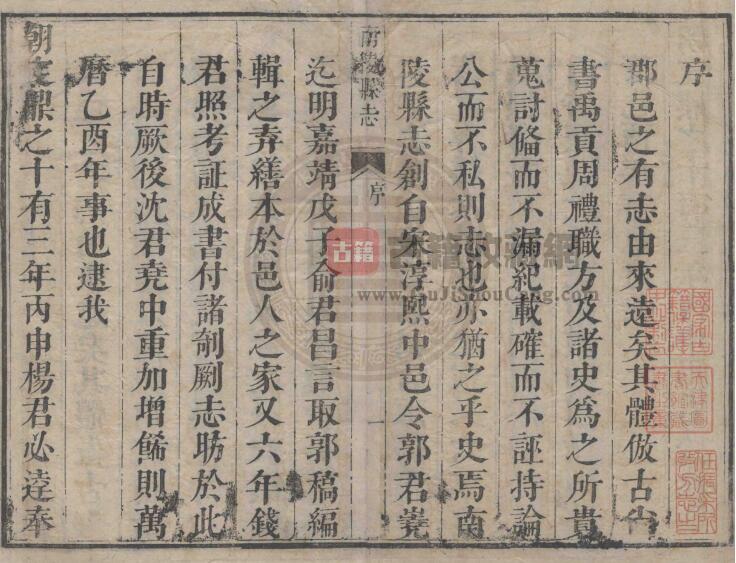 序
郡邑之有志由來遠矣其體倣古尚
書禹貢周禮職方及諸史爲之所貴
蒐討俻而不漏紀載確而不誣持論
公而不私則志也亦猶之乎史焉南
陵縣志創自宋淳熙中邑令郭君嶤
南陵縣志
序
一
迄明嘉靖戊子俞君昌言取郭稿編
輯之弆繕本於邑人之家又六年錢
君照考証成書付諸剞劂志昉於此
自時厥後沈君堯中重加增餙則萬
曆乙酉年事也逮我
朝定鼎之十有三年丙申楊君必逵奉
古籍
古籍收藏網
www.GuJiShouCang.com